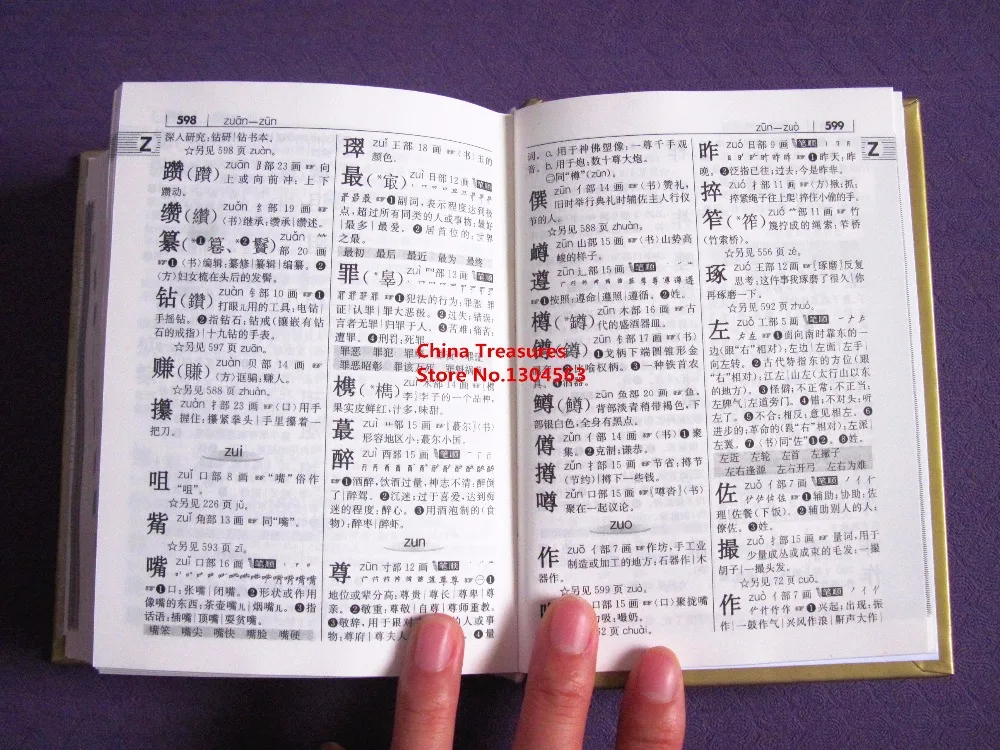 598 zuān—zūn
Z
深入研究:钻研|钻书本。
☆另见 598 页 zuàn。
躜(躦) zuān 𧾷部 23 画 ☞ 向
上或向前冲:上下
躜动。
缵(纘) zuǎn 纟部 19 画 ☞
(书)继承:缵承|缵述。
纂(*❶篹、*❷鬢) zuǎn ⺮
部 20 画
☞❶(书)编辑:纂修|纂辑|编纂。❷
(方)妇女梳在头后的发髻。
钻(鑽) zuàn 钅部 10 画 ☞❶
打眼儿用的工具:电钻|
手摇钻。❷指钻石:钻戒(镶嵌有钻
石的戒指)|十九钻的手表。
☆另见 597 页 zuān。
赚(賺) zuàn 贝部 14 画 ☞
(方)诓骗:赚人。
☆另见 588 页 zhuàn。
攥 zuàn 扌部 23 画 ☞(口)用手
握住:攥紧拳头|手里攥着一
把刀。
zui
咀 zuǐ 口部 8 画 ☞ “嘴”俗作
“咀”。
☆另见 226 页 jǔ。
觜 zuǐ 角部 13 画 ☞ 同“嘴”。
☆另见 593 页 zī。
嘴 zuǐ 口部 16 画 笔顺
☞❶口:张嘴|闭嘴。❷形状或作用
像嘴的东西:茶壶嘴儿|烟嘴儿。❸指
话语:插嘴|顶嘴|耍贫嘴。
嘴笨 嘴尖 嘴快 嘴脸 嘴硬
璻 zuǐ 王部 18 画 ☞(书)玉的
颜色。
最(*㝡) zuì 日部 12 画 笔顺
☞❶副词,表示程度达到极
点,超过所有同类的人或事物:最好
|最多|最爱。❷居首位的:世界
之最。
最初 最后 最近 最为 最终
罪(*辠) zuì 罒部 13 画 笔顺
☞❶犯法的行为:罪恶|罪
证|认罪|罪大恶极。❷过失;错误:
言者无罪|归罪于人。❸苦难;痛苦:
遭罪。❹刑罚:死罪。
槜(檇) zuì 木部 14 画
李子的一个品种,
果实皮鲜红,汁多,味甜。
蕞 zuì 艹部 15 画 ☞[蕞尔](书)
形容地区小:蕞尔小国。
醉 zuì 酉部 15 画 笔顺
☞❶酒醉,饮酒过量,神志不清:醉倒
了|醉驾。❷沉迷;过于喜爱,达到痴
迷的程度:醉心。❸用酒泡制的(食
物):醉枣|醉虾。
zun
尊 zūn 寸部 12 画 笔顺
☞㊀❶
地位或辈分高:尊贵|尊长|尊卑|尊
亲。❷敬重:尊敬|自尊|尊师重教。
❸敬辞,用于跟对方有关的人或事
物:尊府|尊夫人 ❹量
China Treasures
Store No.1304563
zūn—zuò 599
Z
词。a. 用于神佛塑像:一尊千手观
音。b. 用于炮:数十尊大炮。
㊁同“樽”(zūn)。
僎 zūn 亻部 14 画 ☞(书)赞礼,
旧时举行典礼时辅佐主人行仪
节的人。
☆另见 588 页 zhuàn。
嶟 zūn 山部 15 画 ☞(书)山势高
峻的样子。
遵 zūn 辶部 15 画 笔顺
☞❶按照:遵命|遵照|遵循。❷姓。
樽(*罇) zūn 木部 16 画 ☞ 古
代的盛酒器皿。
镈(鐏) zūn 钅部 17 画 ☞❶
(书)戈柄下端圆锥形金
鳟(鱒) zūn 鱼部 20 画 ☞ 鱼,
背部淡青稍带褐色,下
部银白色,全身有黑点。
僔 zǔn 亻部 14 画 ☞(书)❶聚
集。❷克制;谦恭。
撙 zǔn 扌部 15 画 ☞ 节省:撙节
(节约)|撙下一些钱。
噂 zǔn 口部 15 画 ☞[噂沓](书)
聚在一起议论。
zuo
作 zuō 亻部 7 画 ☞ 作坊,手工业
制造或加工的地方:石器作|木
器作。
☆另见 599 页 zuò。
口部 15 画 ☞(口)聚拢嘴
唇吮吸:嘬奶。
页 chuài。
昨 zuó 日部 9 画 笔顺
☞❶昨天:昨
晚。❷泛指已往;过去:今是昨非。
捽 zuó 扌部 11 画 ☞(方)揪;抓:
捽紧绳子往上爬|捽住小偷的手。
笮(*筰) zuó ⺮部 11 画 ☞ 竹
篾拧成的绳索:笮桥
(竹索桥)。
☆另见 556 页 zé。
琢 zuó 王部 12 画 ☞[琢磨]反复
思考:这件事我琢磨了很久|你
再琢磨一下。
☆另见 592 页 zhuó。
左 zuǒ 工部 5 画 笔顺
☞❶面向南时靠东的一
边(跟“右”相对):左边|左面|左手|
向左转。❷古代特指东的方位(跟
“右”相对):江左|山左(太行山以东
的地方)。❸怪僻;不正常;不正当:
左脾气|左道旁门。❹错;不对头:听
左了。❺不合;相反:意见相左。❻
进步的;革命的(跟“右”相对):左派|
左翼。❼(书)同“佐”❶❷。❽姓。
左近 左轮 左首 左撇子
左右逢源 左右开弓 左右为难
佐 zuǒ 亻部 7 画 笔顺
☞❶辅助;协助:佐
理|佐餐(下饭)。❷辅助别人的人:
僚佐。❸姓。
撮 zuǒ 扌部 15 画 ☞ 量词,用于
少量成丛或成束的毛发:一撮
胡子|一撮头发。
☆另见 72 页 cuō。
作 zuò 亻部 7 画 笔顺
☞❶兴起;出现:振作
|一鼓作气|兴风作浪|鼾声大作|